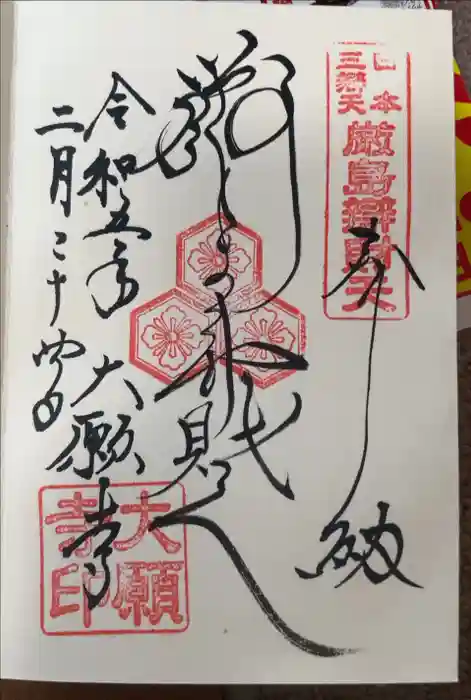 日本
三辨天
厳島辨財天
奉納
令和五年
二月二十四日
大願寺
大願
寺印